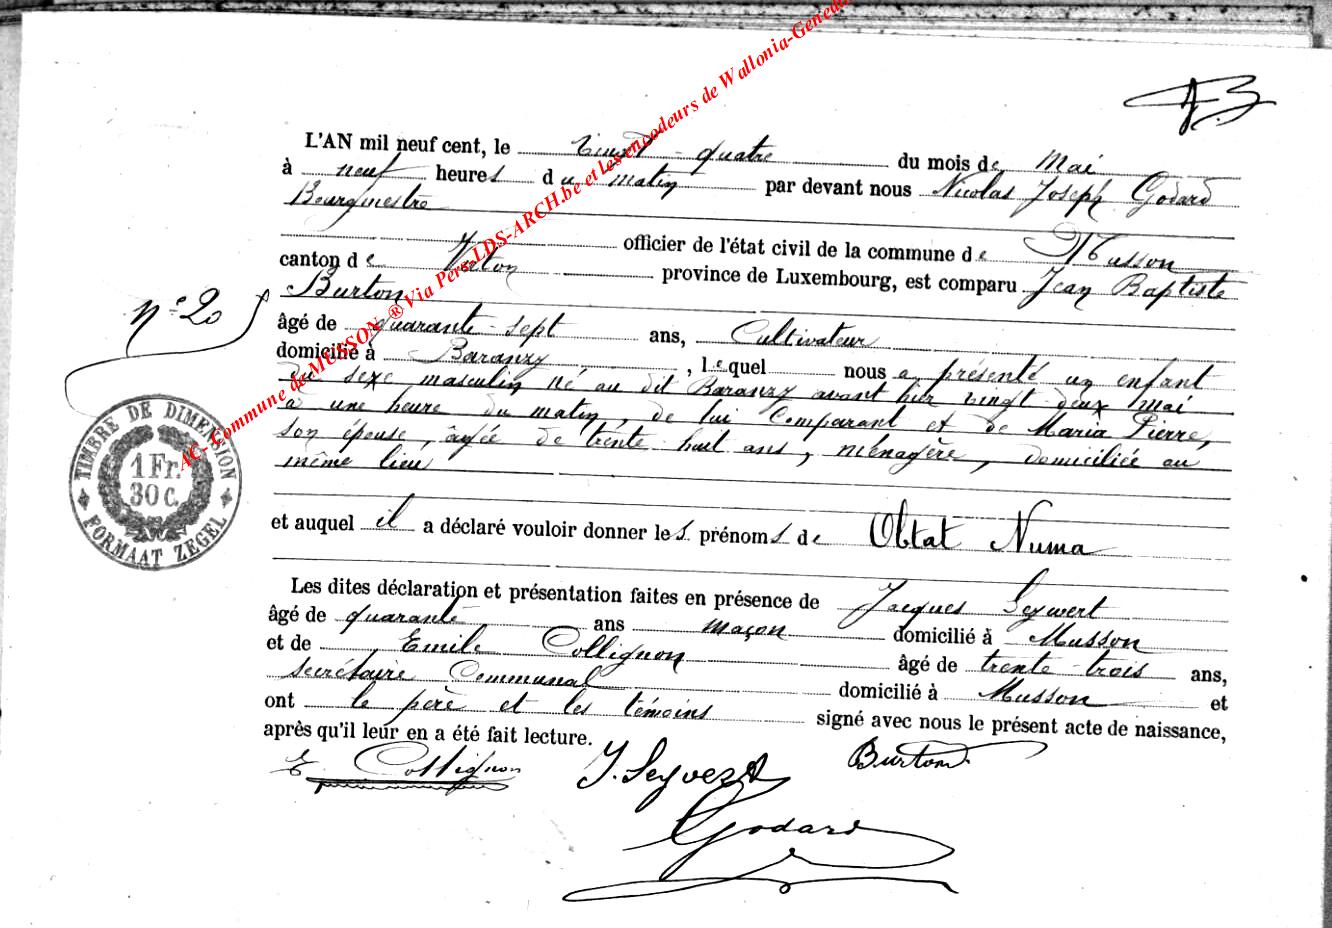 L'AN mil neuf cent, le vingt-quatre du mois de Mai
à neuf heures du matin par devant nous Nicolas Joseph Godard
Bourgmestre
officier de l'état civil de la commune de Musson
canton de Virton province de Luxembourg, est comparu Jean Baptiste
Burton
n° 20
âgé de quarante-sept ans, Cultivateur
domicilié à Baranzy, lequel nous a présenté un enfant
du sexe masculin, né au dit Baranzy avant hier vingt-deux mai
à une heure du matin, de lui Comparant et de Maria Pierre,
son épouse, âgée de trente huit ans, ménagère, domiciliée au
même lieu
et auquel il a déclaré vouloir donner les prénoms de Obtat Numa
Les dites déclaration et présentation faites en présence de Jacques Seywert
âgé de quarante ans maçon domicilié à Musson
et de Emile Collignon âgé de trente-trois ans,
secrétaire Communal domicilié à Musson et
ont le père et les témoins signé avec nous le présent acte de naissance,
après qu'il leur en a été fait lecture.
E. Collignon J. Seywert Burton
Godard
TIMBRE DE DIMENSION
1 Fr.
30 C.
FORMAAT ZEGEL
AC- Commune de MUSSON ® Via Pers-LDS-ARCH.be et les encodeurs de Wallonia-Geneal